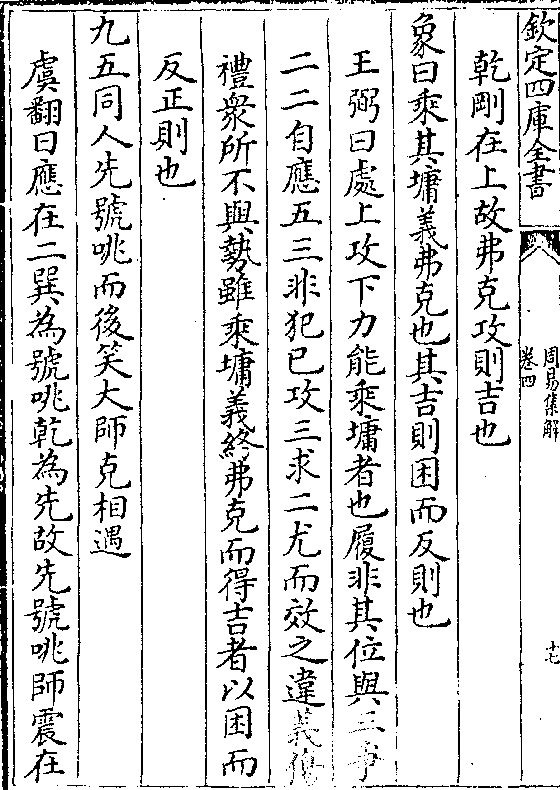 欽定四庫全書
周易集解
卷四
十七
乾剛在上故弗克攻則吉也
象曰乘其墉義弗克也其吉則困而反則也
王弼曰處上攻下力能乘墉者也履非其位與三爭
二二自應五三非犯已攻三求二尤而效之違義傷
禮衆所不與勢雖乘墉義終弗克而得吉者以困而
反正則也
九五同人先號咷而後笑大師克相遇
虞翻曰應在二巽為號咷乾為先故先號咷師震在